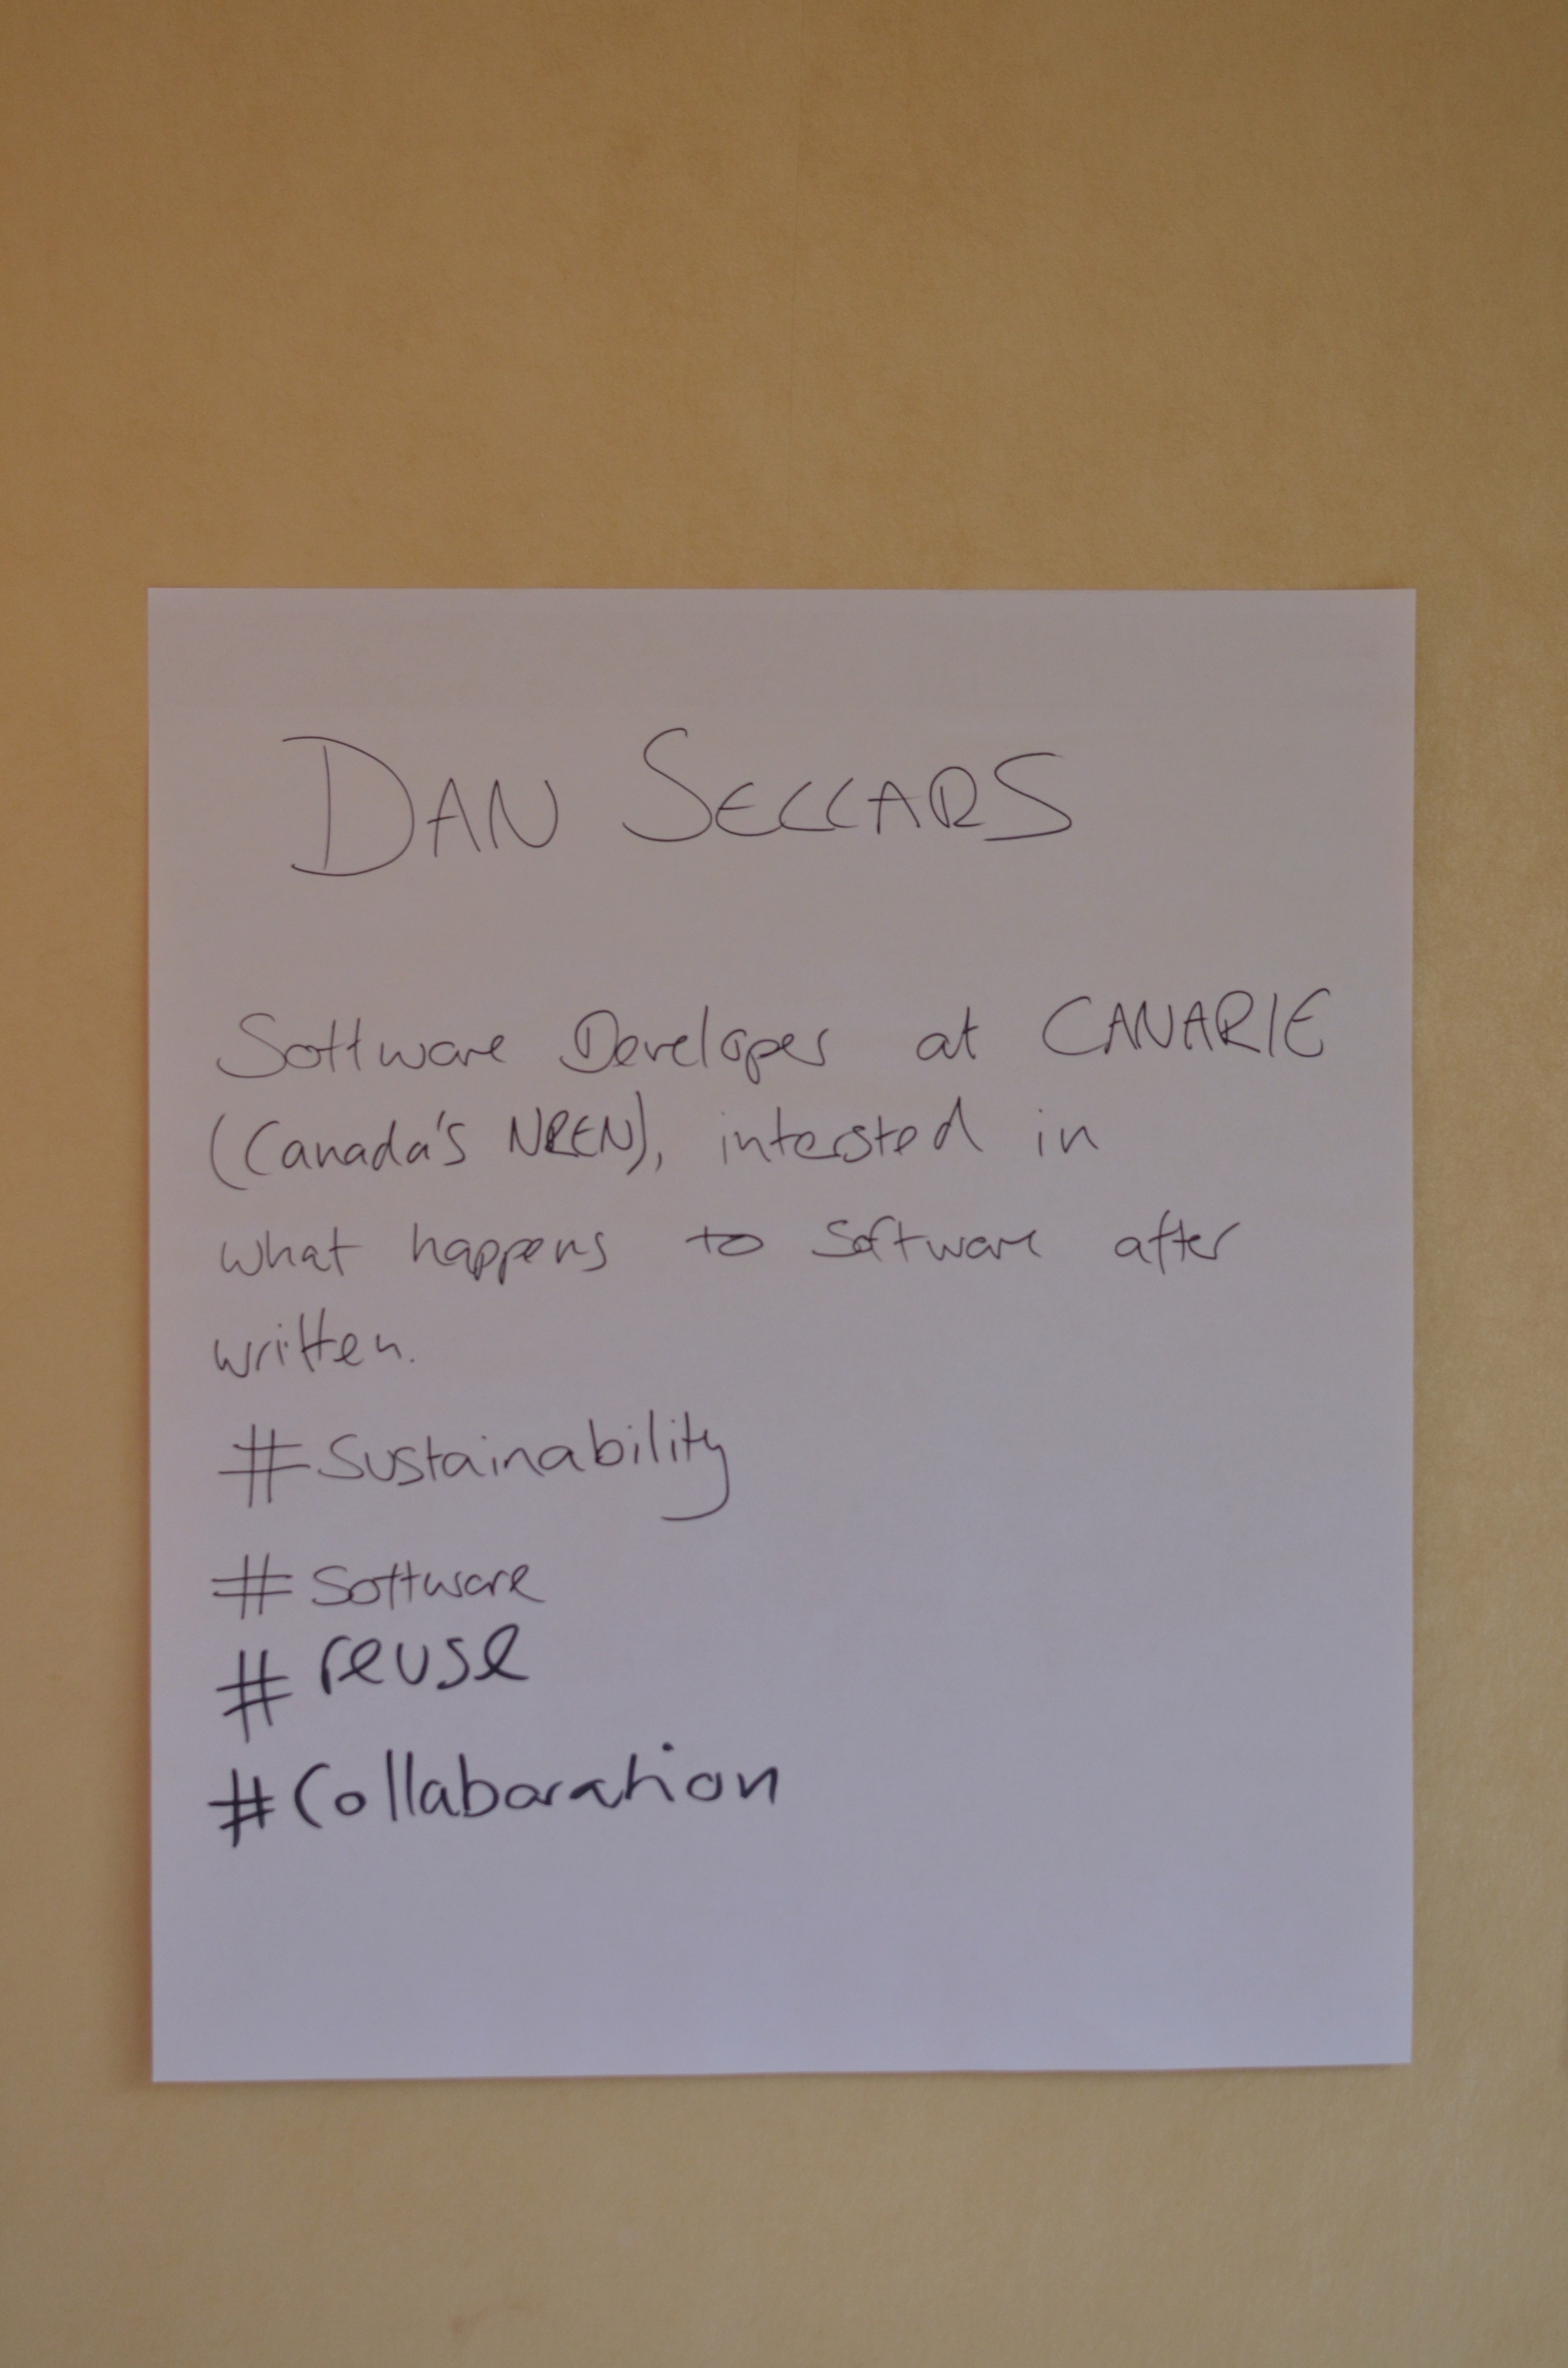 DAN SELLARS
Software Developer at CANARIE
(Canada's NREN), intersted in
what happens to software after
written.
#Sustainability
#Software
#reuse
#Collaboration